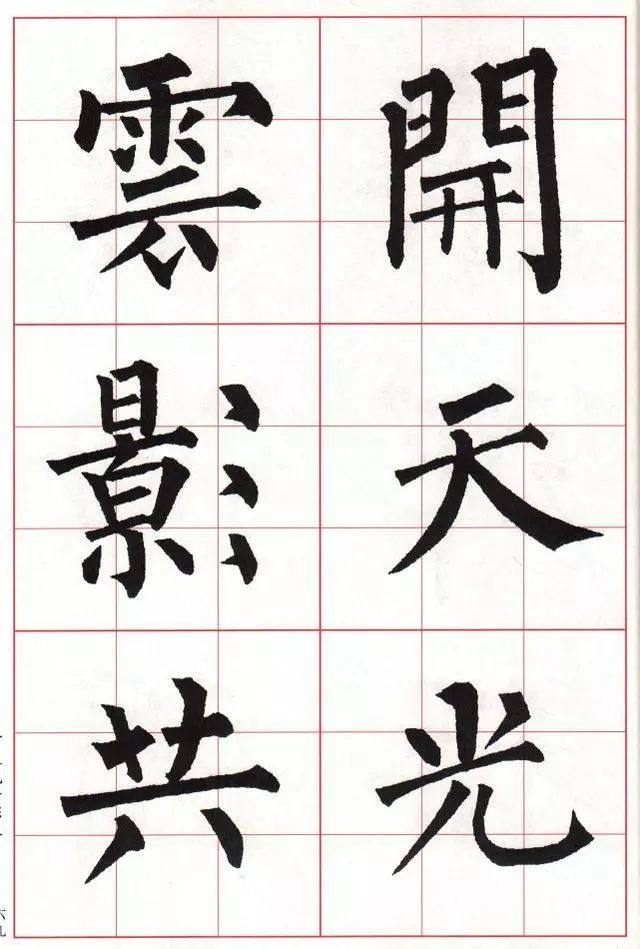 開天光
雲影共